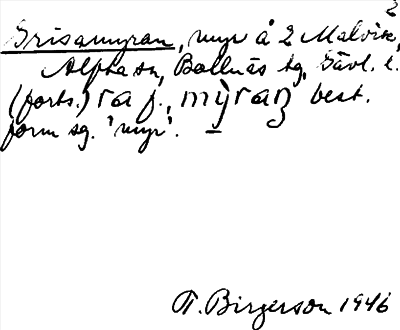 2
Grisamyran, myr å 2 Malvik,
Alfta sn, Bollnäs tg, Gävl. l.
(forts.) ra f., mỳraṉ best.
form sg. 'myr'.
T. Birgerson 1946